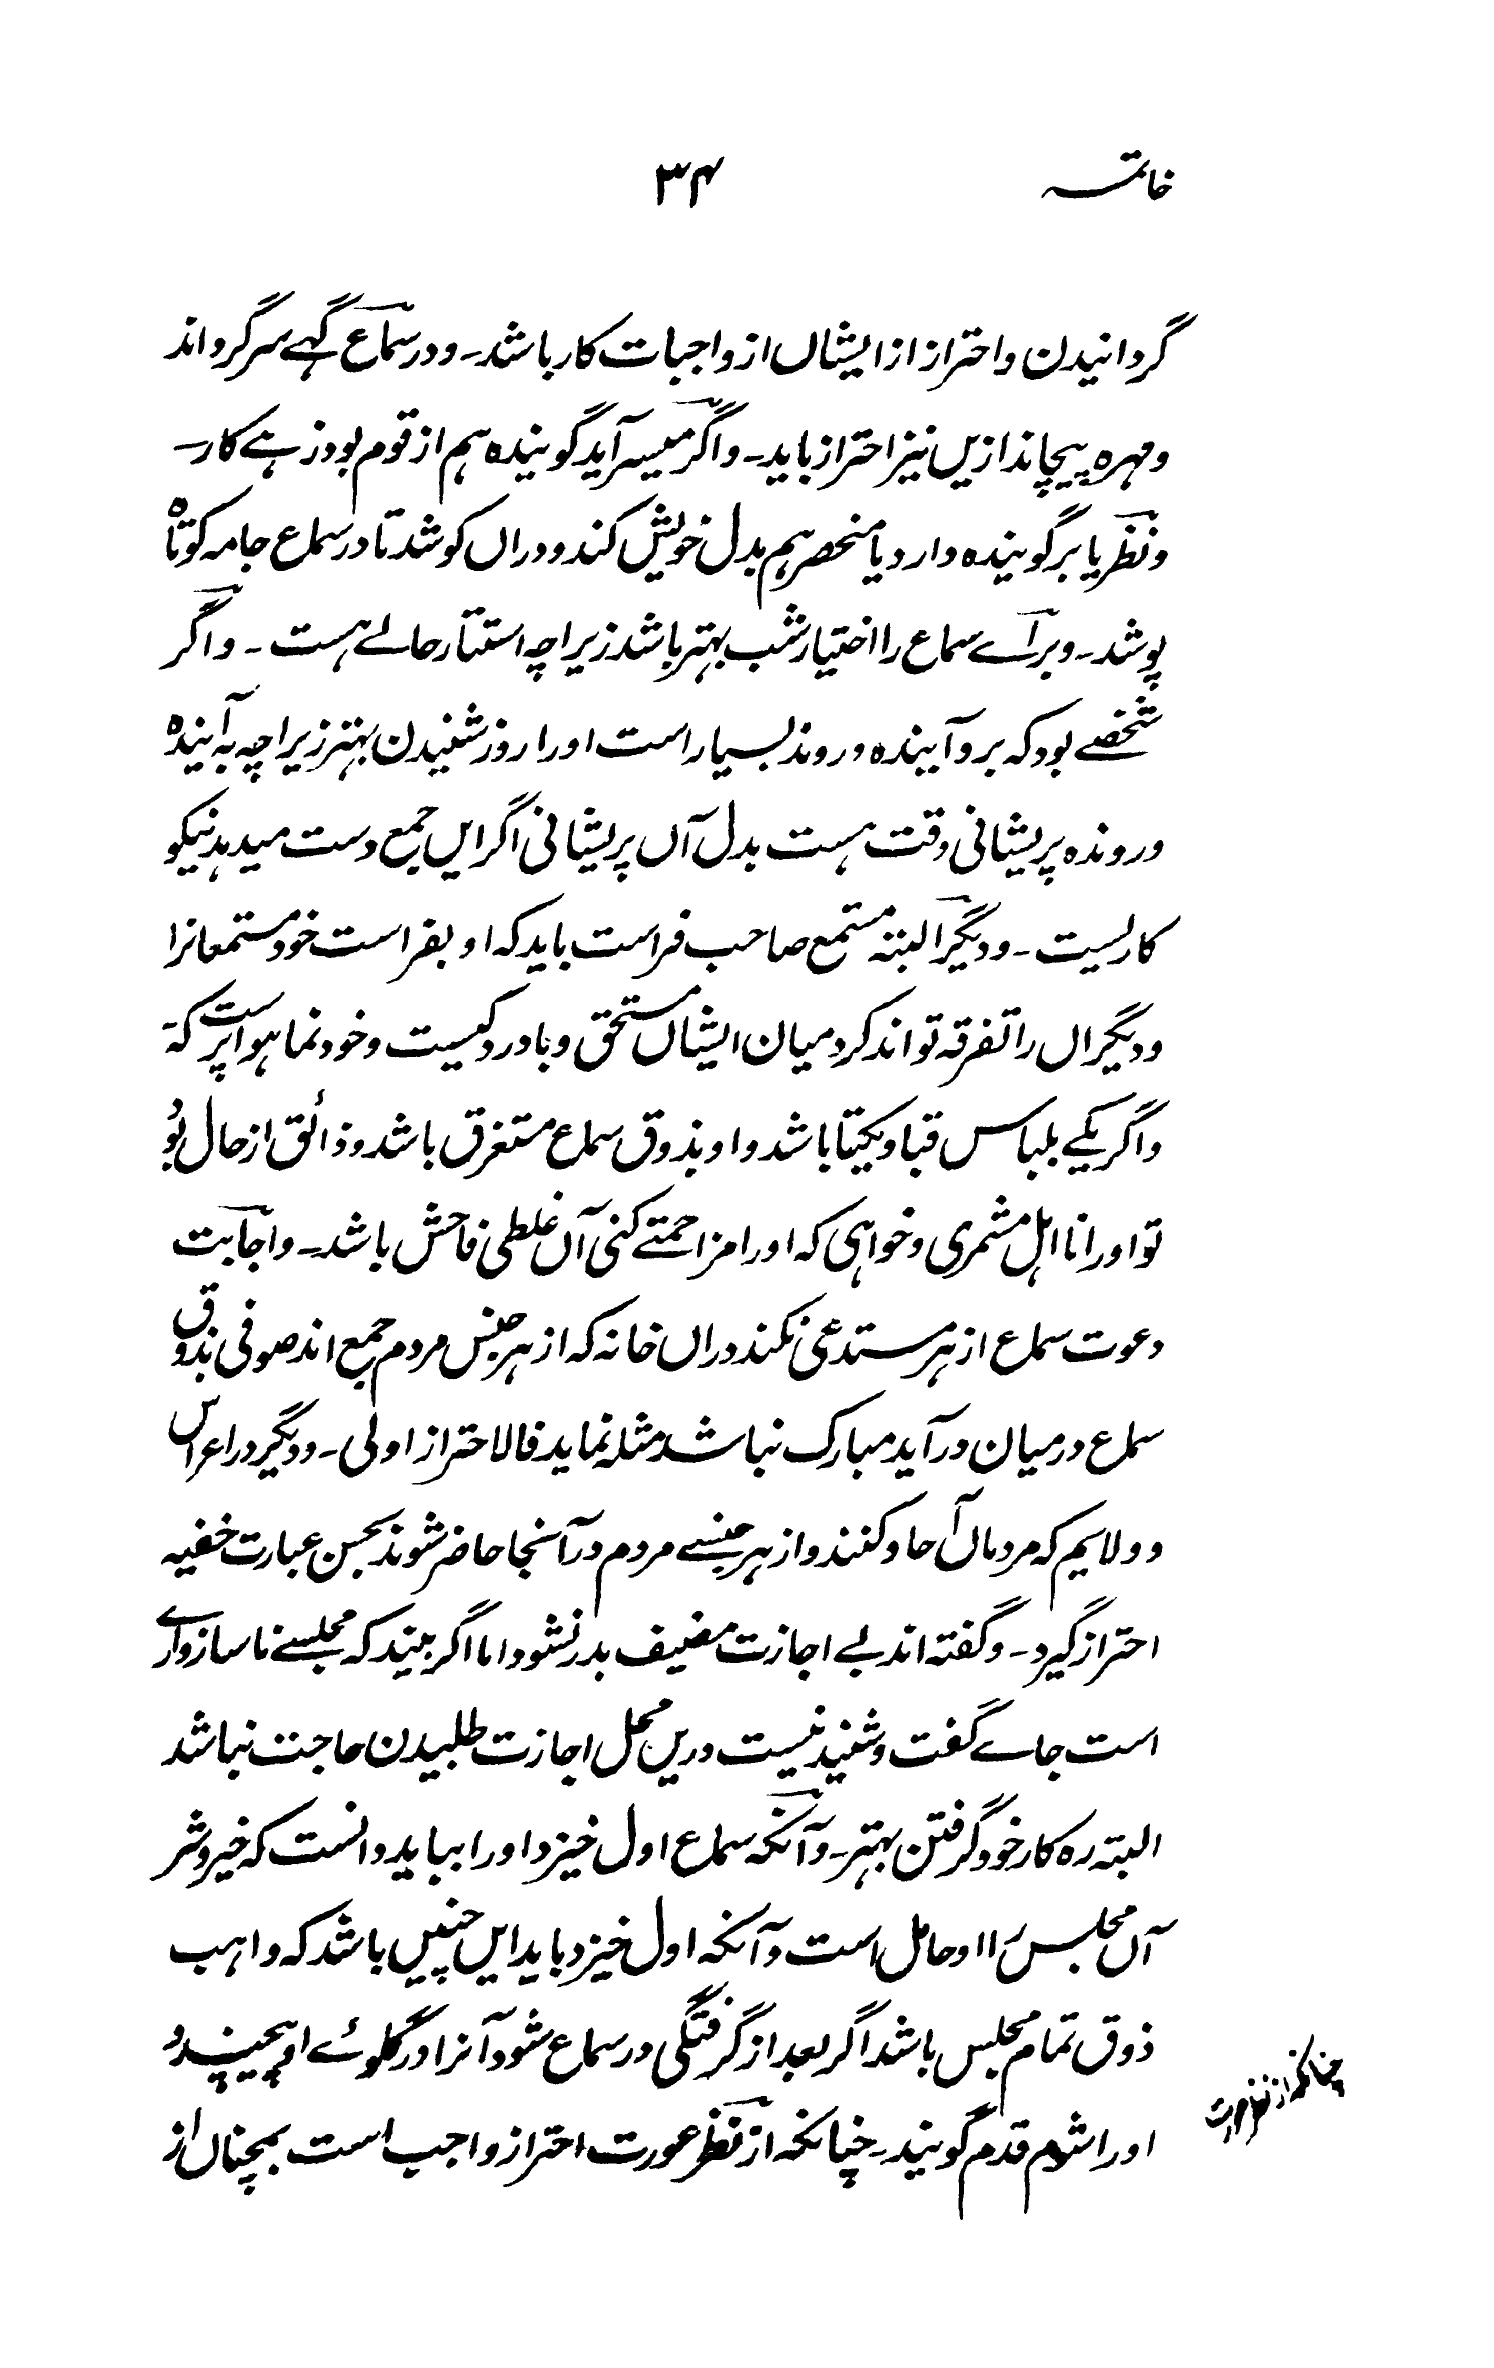 خاتمہ ۳۴
گردانیدن و احتراز از ایشاں از واجبات کار باشد۔ و در سماع گہے سر گرداند
و مہرہ پیچاند ازیں نیز احتراز باید۔ و اگر میسر آید گویندہ ہم از قوم بود زہے کار۔
و نظر یا بر گویندہ دارد یا منحصر ہم بدل خویش کند و دراں کوشد تا در سماع جامہ کوتاہ
پوشد۔ و براے سماع را اختیار شب بہتر باشد زیراچہ استتار حالے ہست۔ و اگر
شخصے بود کہ برو آیندہ و روندہ بسیار است او را روز شنیدن بہتر زیراچہ بہ آیندہ
و روندہ پریشانی وقت ہست بدل آں پریشانی اگر ایں جمع دست میدہد نیکو
کاریست۔ و دیگر البتہ مستمع صاحب فراست باید کہ او بفراست خود مستمعانرا
و دیگراں را تفرقہ تواند کرد میان ایشاں مستحق و بادرد کیست و خود نما ہوا پرست کہ
و اگر یکے بلباس قبا و یکتا باشد و او بذوق سماع مستغرق باشد و ذائق از حال بود
تو او را نا اہل مشمری و خواہی کہ او را مزاحمتے کنی آں غلطی فاحش باشد۔ و اجابت
دعوت سماع از ہر مستدعی نکند دراں خانہ کہ از ہر جنس مردم جمع اند صوفی بذوق
سماع درمیان در آید مبارک نباشد مثلہ نماید فالاحتراز اولی۔ و دیگر در اعراس
و ولایم کہ مردماں آحاد کنند و از ہر جنسے مردم در آنجا حاضر شوند بحسن عبارت خفیہ
احتراز گیرد۔ و گفتہ اند بے اجازت مضیف بدر نشود اما اگر بیند کہ مجلسے ناسازوارے
است جاے گفت و شنید نیست دریں محل اجازت طلبیدن حاجت نباشد
البتہ رہ کار خود گرفتن بہتر۔ و آنکہ سماع اول خیزد او را بباید دانست کہ خیر و شر
آں مجلس را او حامل است و آنکہ اول خیزد باید ایں چنیں باشد کہ واہب
ذوق تمام مجلس باشد اگر بعد از گرفتگی در سماع شود آنرا در گلوئے او پیچیند و
او را شوم قدم گویند۔ چنانکہ از نظر عورت احتراز واجب است ہمچناں از
چنانکہ از نظر عورت